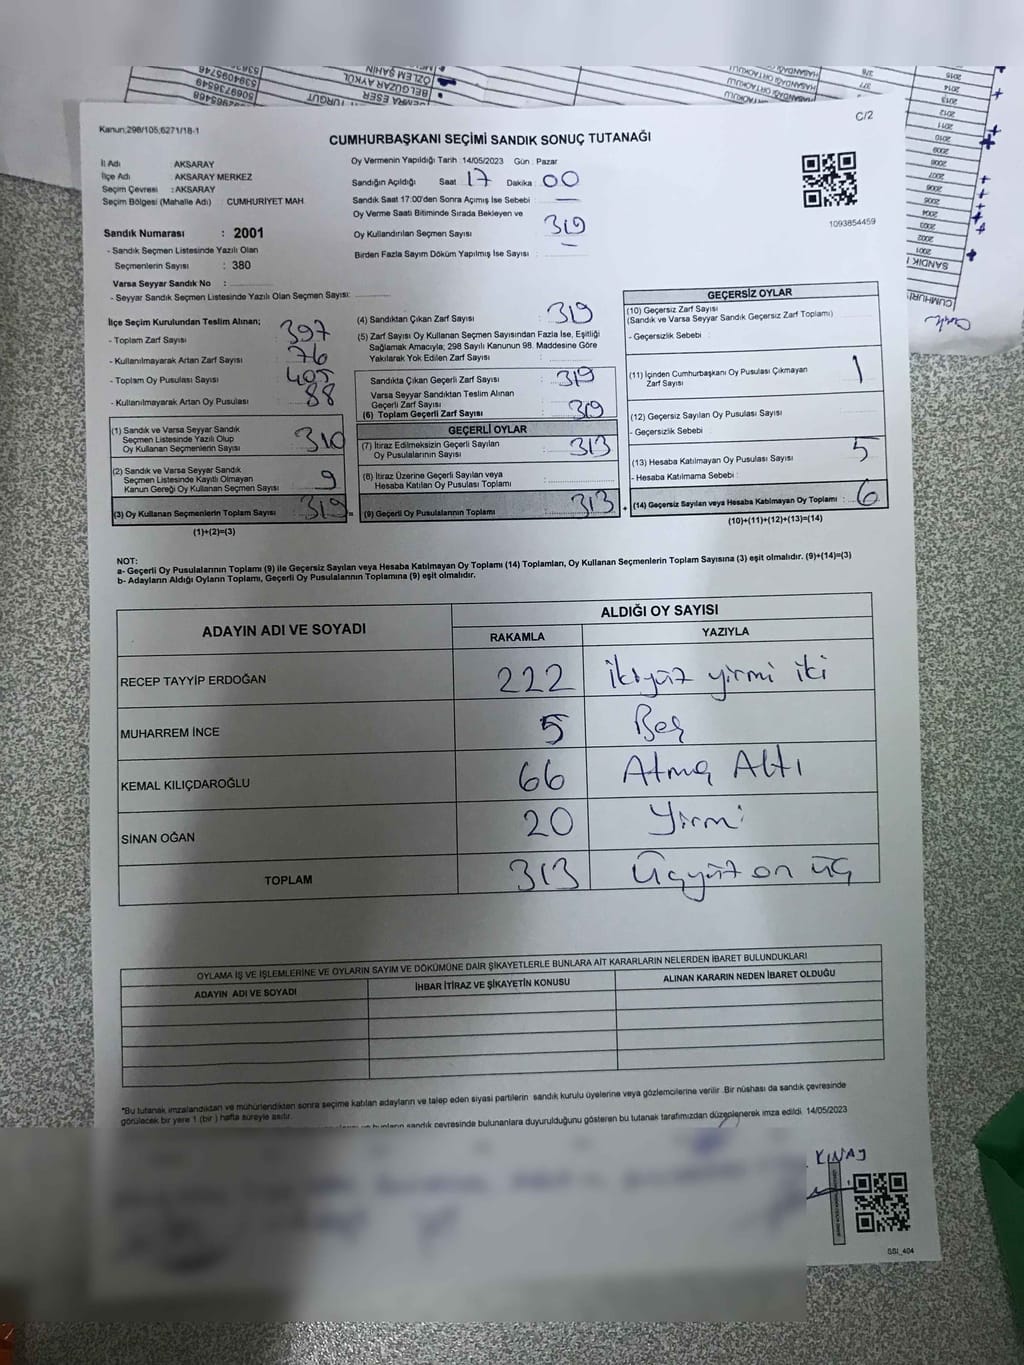 C/2
Kanun,298/105,6271/18-1
CUMHURBAŞKANI SEÇİMİ SANDIK SONUÇ TUTANAĞI
İl Adı AKSARAY
İlçe Adı : AKSARAY MERKEZ
Seçim Çevresi : AKSARAY
Seçim Bölgesi (Mahalle Adı) CUMHURİYET MAH.
Sandık Numarası : 2001
- Sandık Seçmen Listesinde Yazılı Olan
Seçmenlerin Sayısı : 380
Varsa Seyyar Sandık No :
- Seyyar Sandık Seçmen Listesinde Yazılı Olan Seçmen Sayısı:
Oy Vermenin Yapıldığı Tarih : 14/05/2023 Gün : Pazar
Sandığın Açıldığı Saat 17 Dakika 00
Sandık Saat 17:00'den Sonra Açımış İse Sebebi
Oy Verme Saati Bitiminde Sırada Bekleyen ve
Oy Kullandırılan Seçmen Sayısı 319
Birden Fazla Sayım Döküm Yapılmış İse Sayısı : —
1093854459
İlçe Seçim Kurulundan Teslim Alınan;
- Toplam Zarf Sayısı : 397
- Kullanılmayarak Artan Zarf Sayısı : 76
- Toplam Oy Pusulası Sayısı : 405
- Kullanılmayarak Artan Oy Pusulası : 88
(1) Sandık ve Varsa Seyyar Sandık
Seçmen Listesinde Yazılı Olup
Oy Kullanan Seçmenlerin Sayısı 310
(2) Sandık ve Varsa Seyyar Sandık
Seçmen Listesinde Kayıtlı Olmayan
Kanun Gereği Oy Kullanan Seçmen Sayısı 9
(3) Oy Kullanan Seçmenlerin Toplam Sayısı 319 =
(1)+(2)=(3)
(4) Sandıktan Çıkan Zarf Sayısı : 319
(5) Zarf Sayısı Oy Kullanan Seçmen Sayısından Fazla İse, Eşitliği
Sağlamak Amacıyla; 298 Sayılı Kanunun 98. Maddesine Göre
Yakılarak Yok Edilen Zarf Sayısı :
Sandıkta Çıkan Geçerli Zarf Sayısı : 319
Varsa Seyyar Sandıktan Teslim Alınan
Geçerli Zarf Sayısı :
(6) Toplam Geçerli Zarf Sayısı : 319
GEÇERLİ OYLAR
(7) İtiraz Edilmeksizin Geçerli Sayılan
Oy Pusulalarının Sayısı : 313
(8) İtiraz Üzerine Geçerli Sayılan veya
Hesaba Katılan Oy Pusulası Toplamı
(9) Geçerli Oy Pusulalarının Toplamı : 313 +
GEÇERSİZ OYLAR
(10) Geçersiz Zarf Sayısı
(Sandık ve Varsa Seyyar Sandık Geçersiz Zarf Toplamı)
- Geçersizlik Sebebi :
(11) İçinden Cumhurbaşkanı Oy Pusulası Çıkmayan
Zarf Sayısı 1
(12) Geçersiz Sayılan Oy Pusulası Sayısı
- Geçersizlik Sebebi :
(13) Hesaba Katılmayan Oy Pusulası Sayısı 5
- Hesaba Katılmama Sebebi :
(14) Geçersiz Sayılan veya Hesaba Katılmayan Oy Toplamı : 6
(10)+(11)+(12)+(13)=(14)
NOT:
a- Geçerli Oy Pusulalarının Toplamı (9) ile Geçersiz Sayılan veya Hesaba Katılmayan Oy Toplamı (14) Toplamları, Oy Kullanan Seçmenlerin Toplam Sayısına (3) eşit olmalıdır. (9)+(14)=(3)
b- Adayların Aldığı Oyların Toplamı, Geçerli Oy Pusulalarının Toplamına (9) eşit olmalıdır.
ADAYIN ADI VE SOYADI ALDIĞI OY SAYISI
RAKAMLA YAZIYLA
RECEP TAYYİP ERDOĞAN 222 İkiyüz yirmi iki
MUHARREM İNCE 5 Beş
KEMAL KILIÇDAROĞLU 66 Atmış Altı
SİNAN OĞAN 20 Yirmi
TOPLAM 313 Üçyüz on üç
OYLAMA İŞ VE İŞLEMLERİNE VE OYLARIN SAYIM VE DÖKÜMÜNE DAİR ŞİKAYETLERLE BUNLARA AİT KARARLARIN NELERDEN İBARET BULUNDUKLARI
ADAYIN ADI VE SOYADI İHBAR İTİRAZ VE ŞİKAYETİN KONUSU ALINAN KARARIN NEDEN İBARET OLDUĞU
*Bu tutanak imzalandıktan ve mühürlendikten sonra seçime katılan adayların ve talep eden siyasi partilerin sandık kurulu üyelerine veya gözlemcilerine verilir .Bir nüshası da sandık çevresinde
görülecek bir yere 1 (bir ) hafta süreyle asılır.
bunların sandık çevresinde bulunanlara duyurulduğunu gösteren bu tutanak tarafımızdan düzenlenerek imza edildi. 14/05/2023
KINAJ
SSI_404